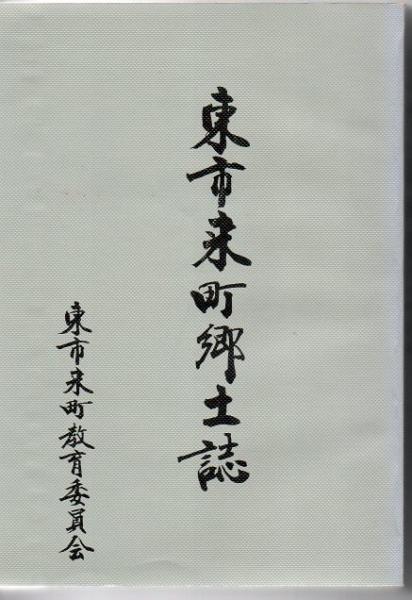 東市来町郷土誌
東市来町教育委員会